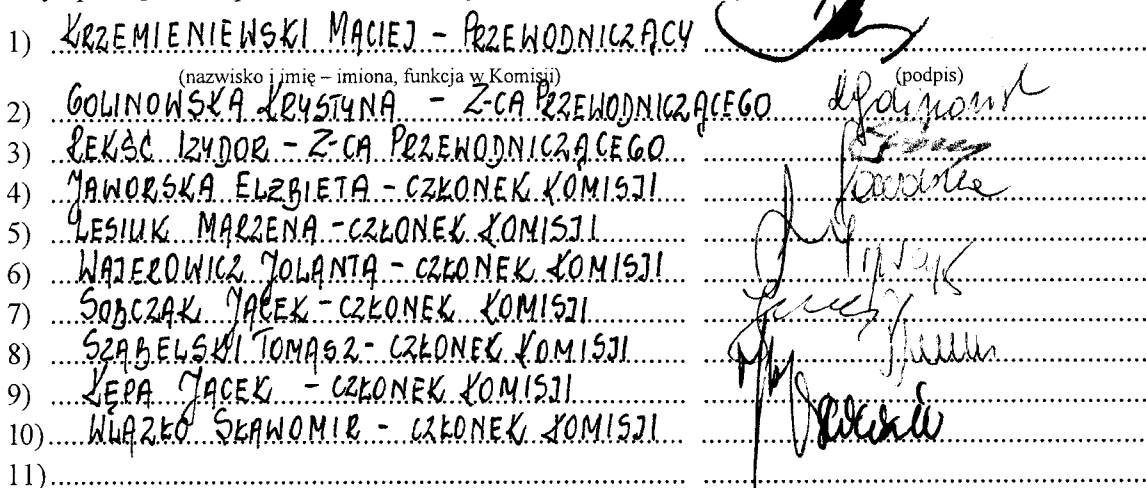 1) KRZEMIENIEWSKI MACIEJ – PRZEWODNICZĄCY
(nazwisko i imię – imiona, funkcja w Komisji) (podpis)
2) GOLINOWSKA KRYSTYNA – Z-CA PRZEWODNICZĄCEGO
3) REKŚĆ IZYDOR – Z-CA PRZEWODNICZĄCEGO
4) JAWORSKA ELŻBIETA – CZŁONEK KOMISJI
5) LESIUK MARZENA – CZŁONEK KOMISJI
6) WAJEROWICZ JOLANTA – CZŁONEK KOMISJI
7) SOBCZAK JACEK – CZŁONEK KOMISJI
8) SZABELSKI TOMASZ – CZŁONEK KOMISJI
9) KĘPA JACEK – CZŁONEK KOMISJI
10) WLĄZŁO SŁAWOMIR – CZŁONEK KOMISJI
11)